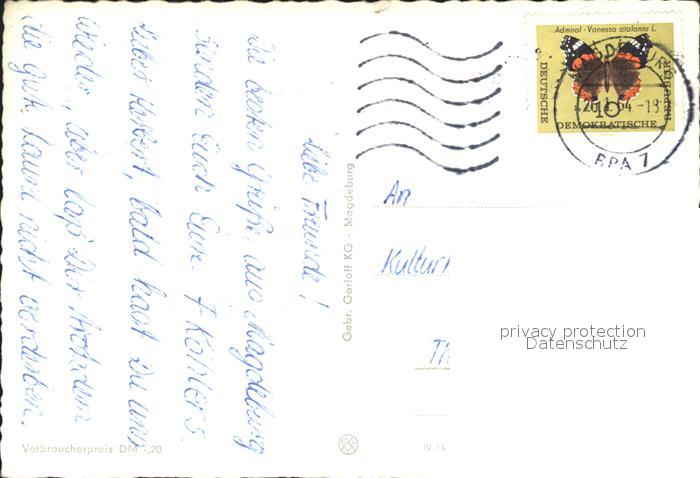 Liebe Freunde!
Die besten Grüße aus Magdeburg
senden Euch Eure 7 Köhlers.
Lieber Herbert, bald hast Du uns
wieder, aber lass Dir trotzdem
die gute Laune nicht verderben.
Verbraucherpreis DM -,20
Gebr. Garloff KG - Magdeburg
IV 14
Admiral - Vanessa atalanta L.
DEUTSCHE
DEMOKRATISCHE
REPUBLIK
10
64 -18
BPA 7
An
Kultur
Th
privacy protection
Datenschutz